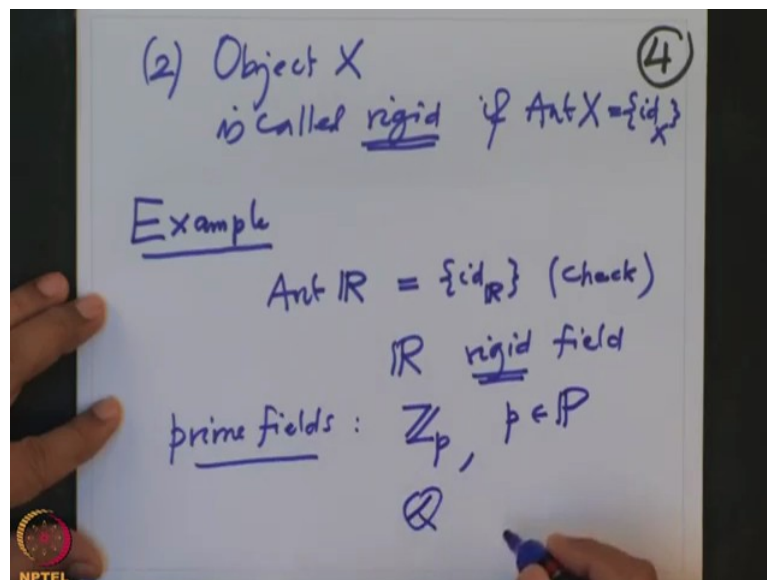 (2) Object X
④
is called rigid if Aut X = {id_X}
Example
Aut ℝ = {id_ℝ} (check)
ℝ rigid field
prime fields : ℤ_p, p ∈ ℙ
ℚ
NPTEL